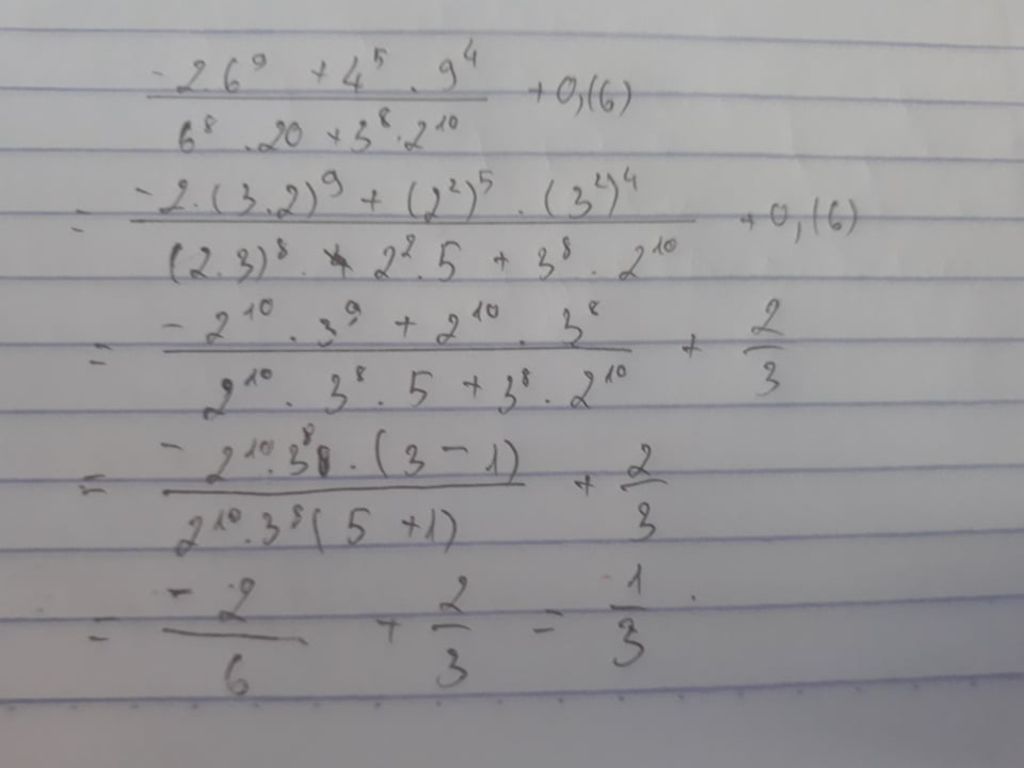 (-2.6⁹ + 4⁵ . 9⁴) / (6⁸ . 20 + 3⁸ . 2¹⁰) + 0,(6)
= (-2.(3.2)⁹ + (2²)⁵ . (3²)⁴) / ((2.3)⁸ . 2² . 5 + 3⁸ . 2¹⁰) + 0,(6)
= (-2¹⁰ . 3⁹ + 2¹⁰ . 3⁸) / (2¹⁰ . 3⁸ . 5 + 3⁸ . 2¹⁰) + 2/3
= (-2¹⁰.3⁸ . (3 - 1)) / (2¹⁰.3⁸(5 + 1)) + 2/3
= -2/6 + 2/3 = 1/3 .